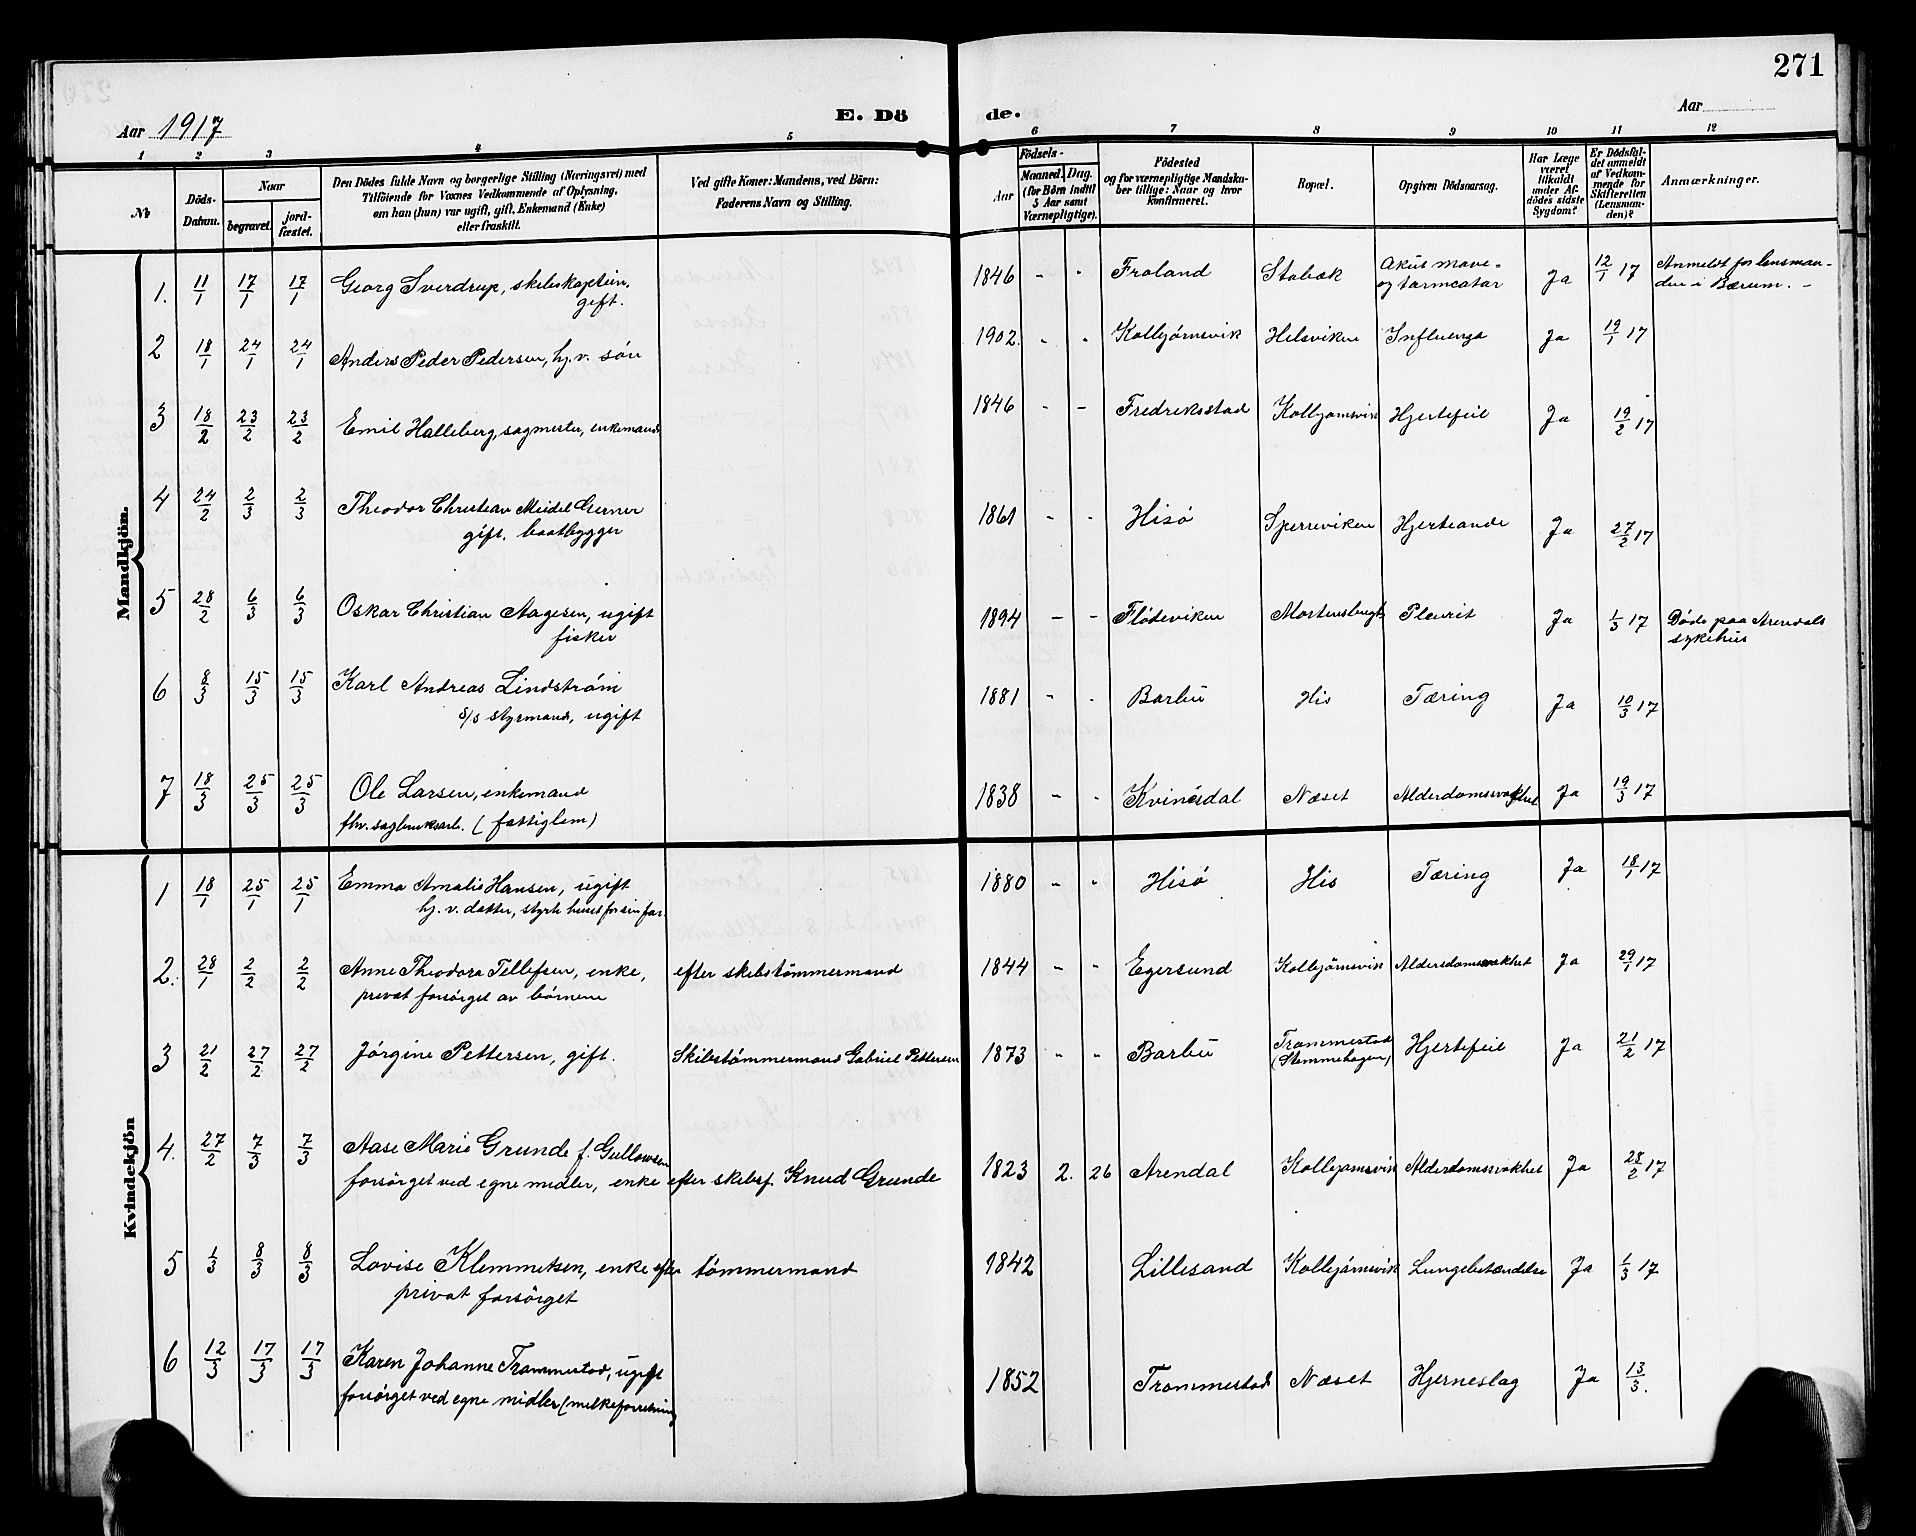 271
Aar 1917
E. Dö
de.
Aar
1 2 3 4 5 6 7 8 9 10 11 12
№
Döds-
Datum.
Naar
begravet.
jord-
fæstet.
Den Dödes fulde Navn og borgerlige Stilling (Næringsvei) med
Tilföiende for Voxnes Vedkommende af Oplysning,
om han (hun) var ugift, gift, Enkemand (Enke)
eller fraskilt.
Ved gifte Koner: Mandens, ved Börn:
Faderens Navn og Stilling.
Födsels-
Aar
Maaned.
Dag.
(for Börn indtil
5 Aar samt
Værnepligtige).
Födested
og for værnepligtige Mandska-
ber tillige: Naar og hvor
konfirmeret.
Bopæl.
Opgiven Dödsaarsag.
Har Læge
været
tilkaldt
under Af-
dödes sidste
Sygdom?
Er Dödsfal-
det anmeldt
af Vedkom-
mende for
Skifteretten
(Lensman-
den)?
Anmærkninger.
Mandkjön.
1. 11/1 17/1 17/1 Georg Sverdrup, skibskaptein, 1846 - - Froland Stabæk Akut mave- Ja 12/1 17 Anmeldt for lensman-
gift. og tarmcatar den i Bærum. -
2 18/1 24/1 24/1 Anders Peder Pedersen, hj. v. søn 1902. - - Kolbjørnsvik Helsviken Influenza Ja 19/1 17
3 18/2 23/2 23/2 Emil Halleberg, sagmester, enkemand 1846 - - Fredriksstad Kolbjørnsvik Hjertefeil Ja 19/2 17
4 24/2 2/3 2/3 Theodor Christian Meidel Gerner 1861 - - Hisø Sperreviken Hjerteonde Ja 27/2 17
gift. baatbygger
5 28/2 6/3 6/3 Oskar Christian Aagesen, ugift 1894 - - Flødeviken Pleurit Ja 1/3 17 Døde paa Arendals
fisker sykehus
6 8/3 15/3 15/3 Karl Andreas Lindstrøm 1881 - - Barbu His Tæring Ja 10/3 17
s/s styrmand, ugift
7 18/3 25/3 25/3 Ole Larsen, enkemand 1838 - - Kvinesdal Næset Alderdomssvakhet Ja 19/3 17
fhv. sagbruksarb. (fattiglem)
Kvindekjön
1 18/1 25/1 25/1 Emma Amalie Hansen, ugift 1880 - - Hisø His Tæring Ja 18/1 17
hj. v. datter, styrte huset for sin far.
2. 28/1 2/2 2/2 Anne Theodora Tellefsen, enke, efter skibstømmermand 1844 - - Egersund Kolbjørnsvik Alderdomssvakhet Ja 29/1 17
privat forsørget av børnene
3 21/2 27/2 27/2 Jørgine Pettersen, gift. Skibstømmermand Gabriel Pettersen 1873 - - Barbu Trommestad Hjertefeil Ja 21/2 17
(Stemmehagen)
4. 27/2 7/3 7/3 Aase Marie Grunde f. Gullowsen 1823 2. 26 Arendal Kolbjørnsvik Alderdomssvakhet Ja 28/2 17
forsørget ved egne midler, enke efter skibsf. Knud Grunde
5 1/3 8/3 8/3 Lovise Klemmetsen, enke efter tømmermand 1842 Lillesand Kolbjørnsvik Lungebetændelse Ja 1/3 17
privat forsørget
6 12/3 17/3 17/3 Karen Johanne Trommestad, ugift 1852 Trommestad Næset Hjerneslag Ja 13/3.
forsørget ved egne midler (melkeforretning